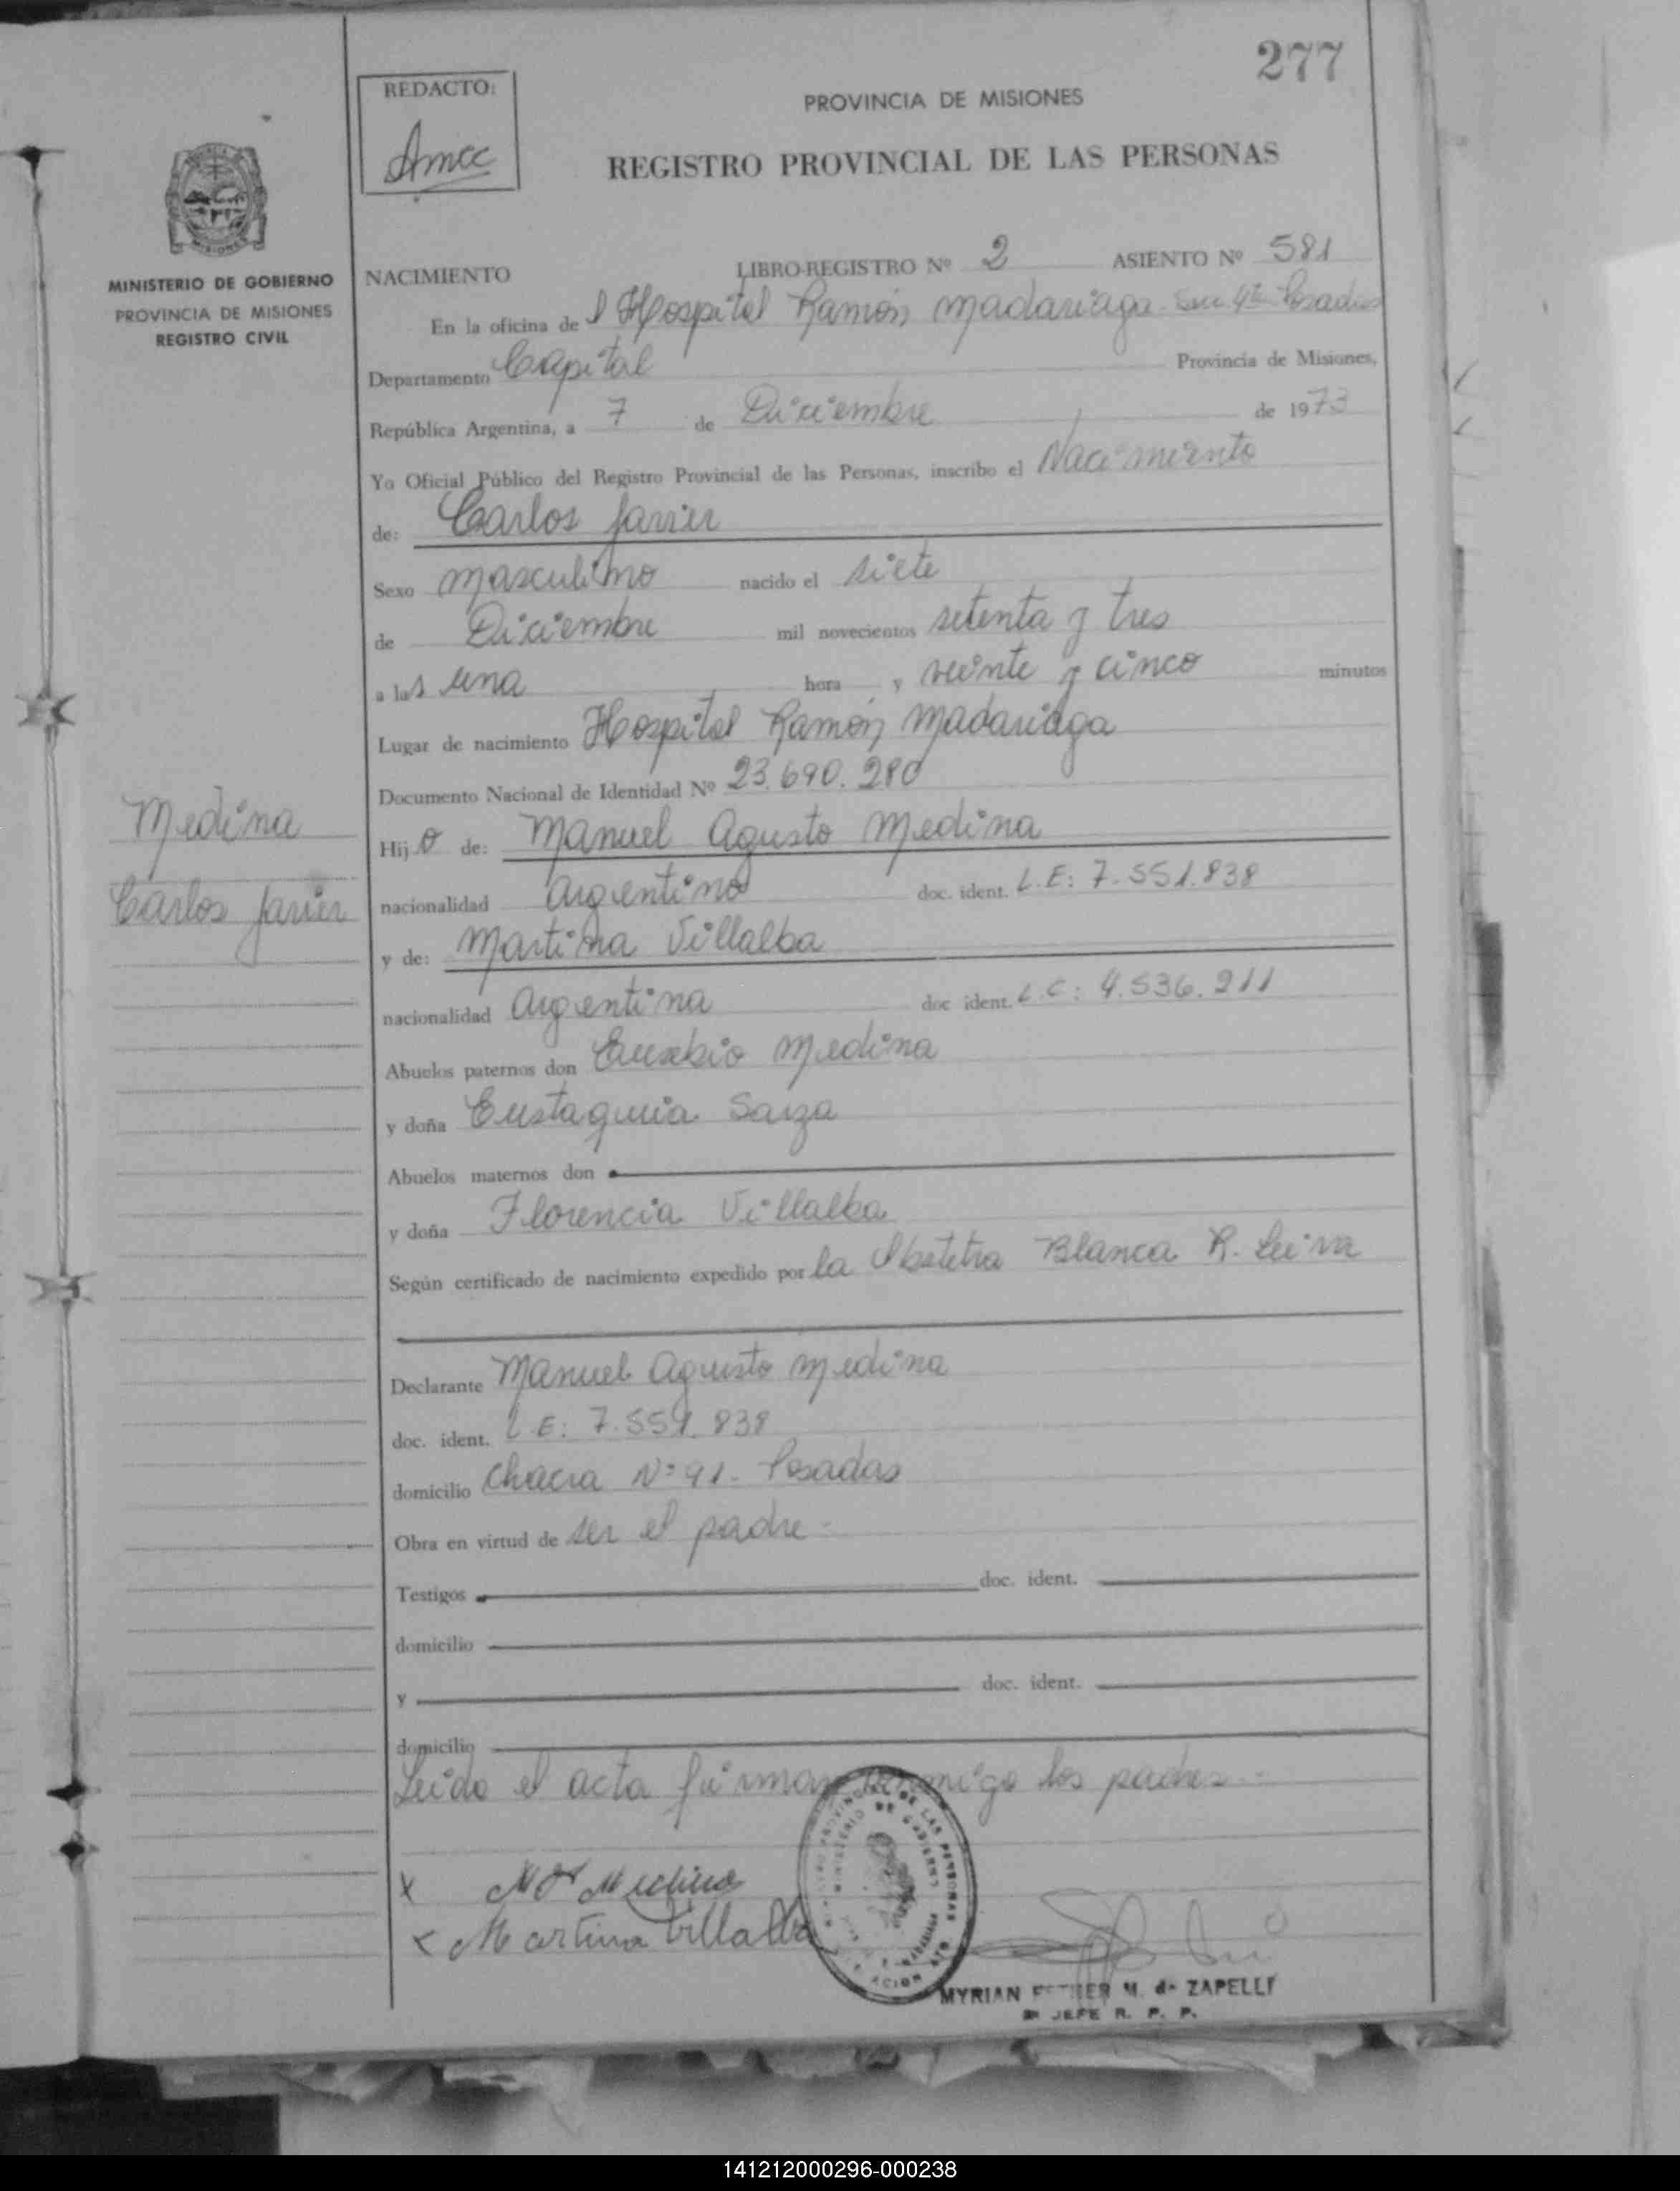 277
REDACTO:
Amcc
PROVINCIA DE MISIONES
REGISTRO PROVINCIAL DE LAS PERSONAS
MISIONES
MINISTERIO DE GOBIERNO
PROVINCIA DE MISIONES
REGISTRO CIVIL
NACIMIENTO LIBRO-REGISTRO Nº 2 ASIENTO Nº 581
En la oficina del Hospital Ramón Madariaga Posadas
Departamento Capital Provincia de Misiones,
República Argentina, a 7 de Diciembre de 1973
Yo Oficial Público del Registro Provincial de las Personas, inscribo el Nacimiento
de: Carlos Javier
Sexo masculino nacido el siete
de Diciembre mil novecientos setenta y tres
a las una hora y veinte y cinco minutos
Lugar de nacimiento Hospital Ramón Madariaga
Documento Nacional de Identidad Nº 23.690.280
Medina
Carlos Javier
Hijo de: Manuel Agusto Medina
nacionalidad argentino doc. ident. L.E: 7.551.838
y de: Martina Villalba
nacionalidad argentina doc ident. L.C: 4.536.211
Abuelos paternos don Eusebio Medina
y doña Eustaquia Saiza
Abuelos maternos don
y doña Florencia Villalba
Según certificado de nacimiento expedido por la Obstetra Blanca R. Leiva
Declarante Manuel Agusto Medina
doc. ident. L.E: 7.551.838
domicilio Chacra Nº 91- Posadas
Obra en virtud de ser el padre-
Testigos doc. ident.
domicilio
y doc. ident.
domicilio
Leida el acta firman conmigo los padres
x Medina
x Martina Villalba
MYRIAN ESTHER M. de ZAPELLI
JEFE R. P. P.
141212000296-000238